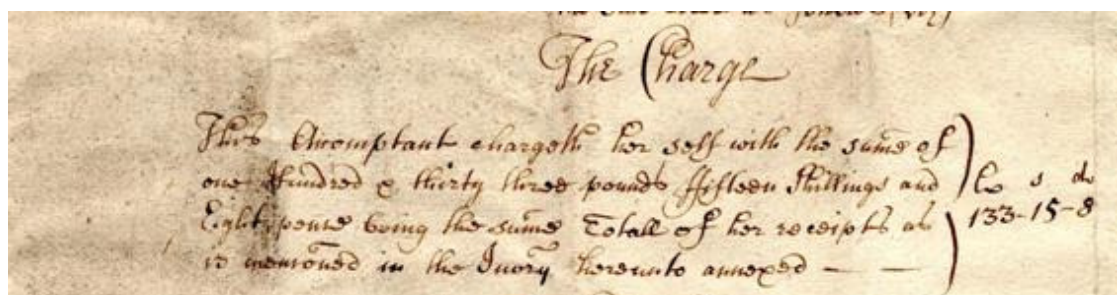 The Charge
This Accomptant chargeth her self with the sume of
one Hundred & thirty three pounds ffifteen Shillings and
Eight pence being the sume Totall of her receipts as
is menconed in the Invory hereunto annexed — —
l s d
133-15-8